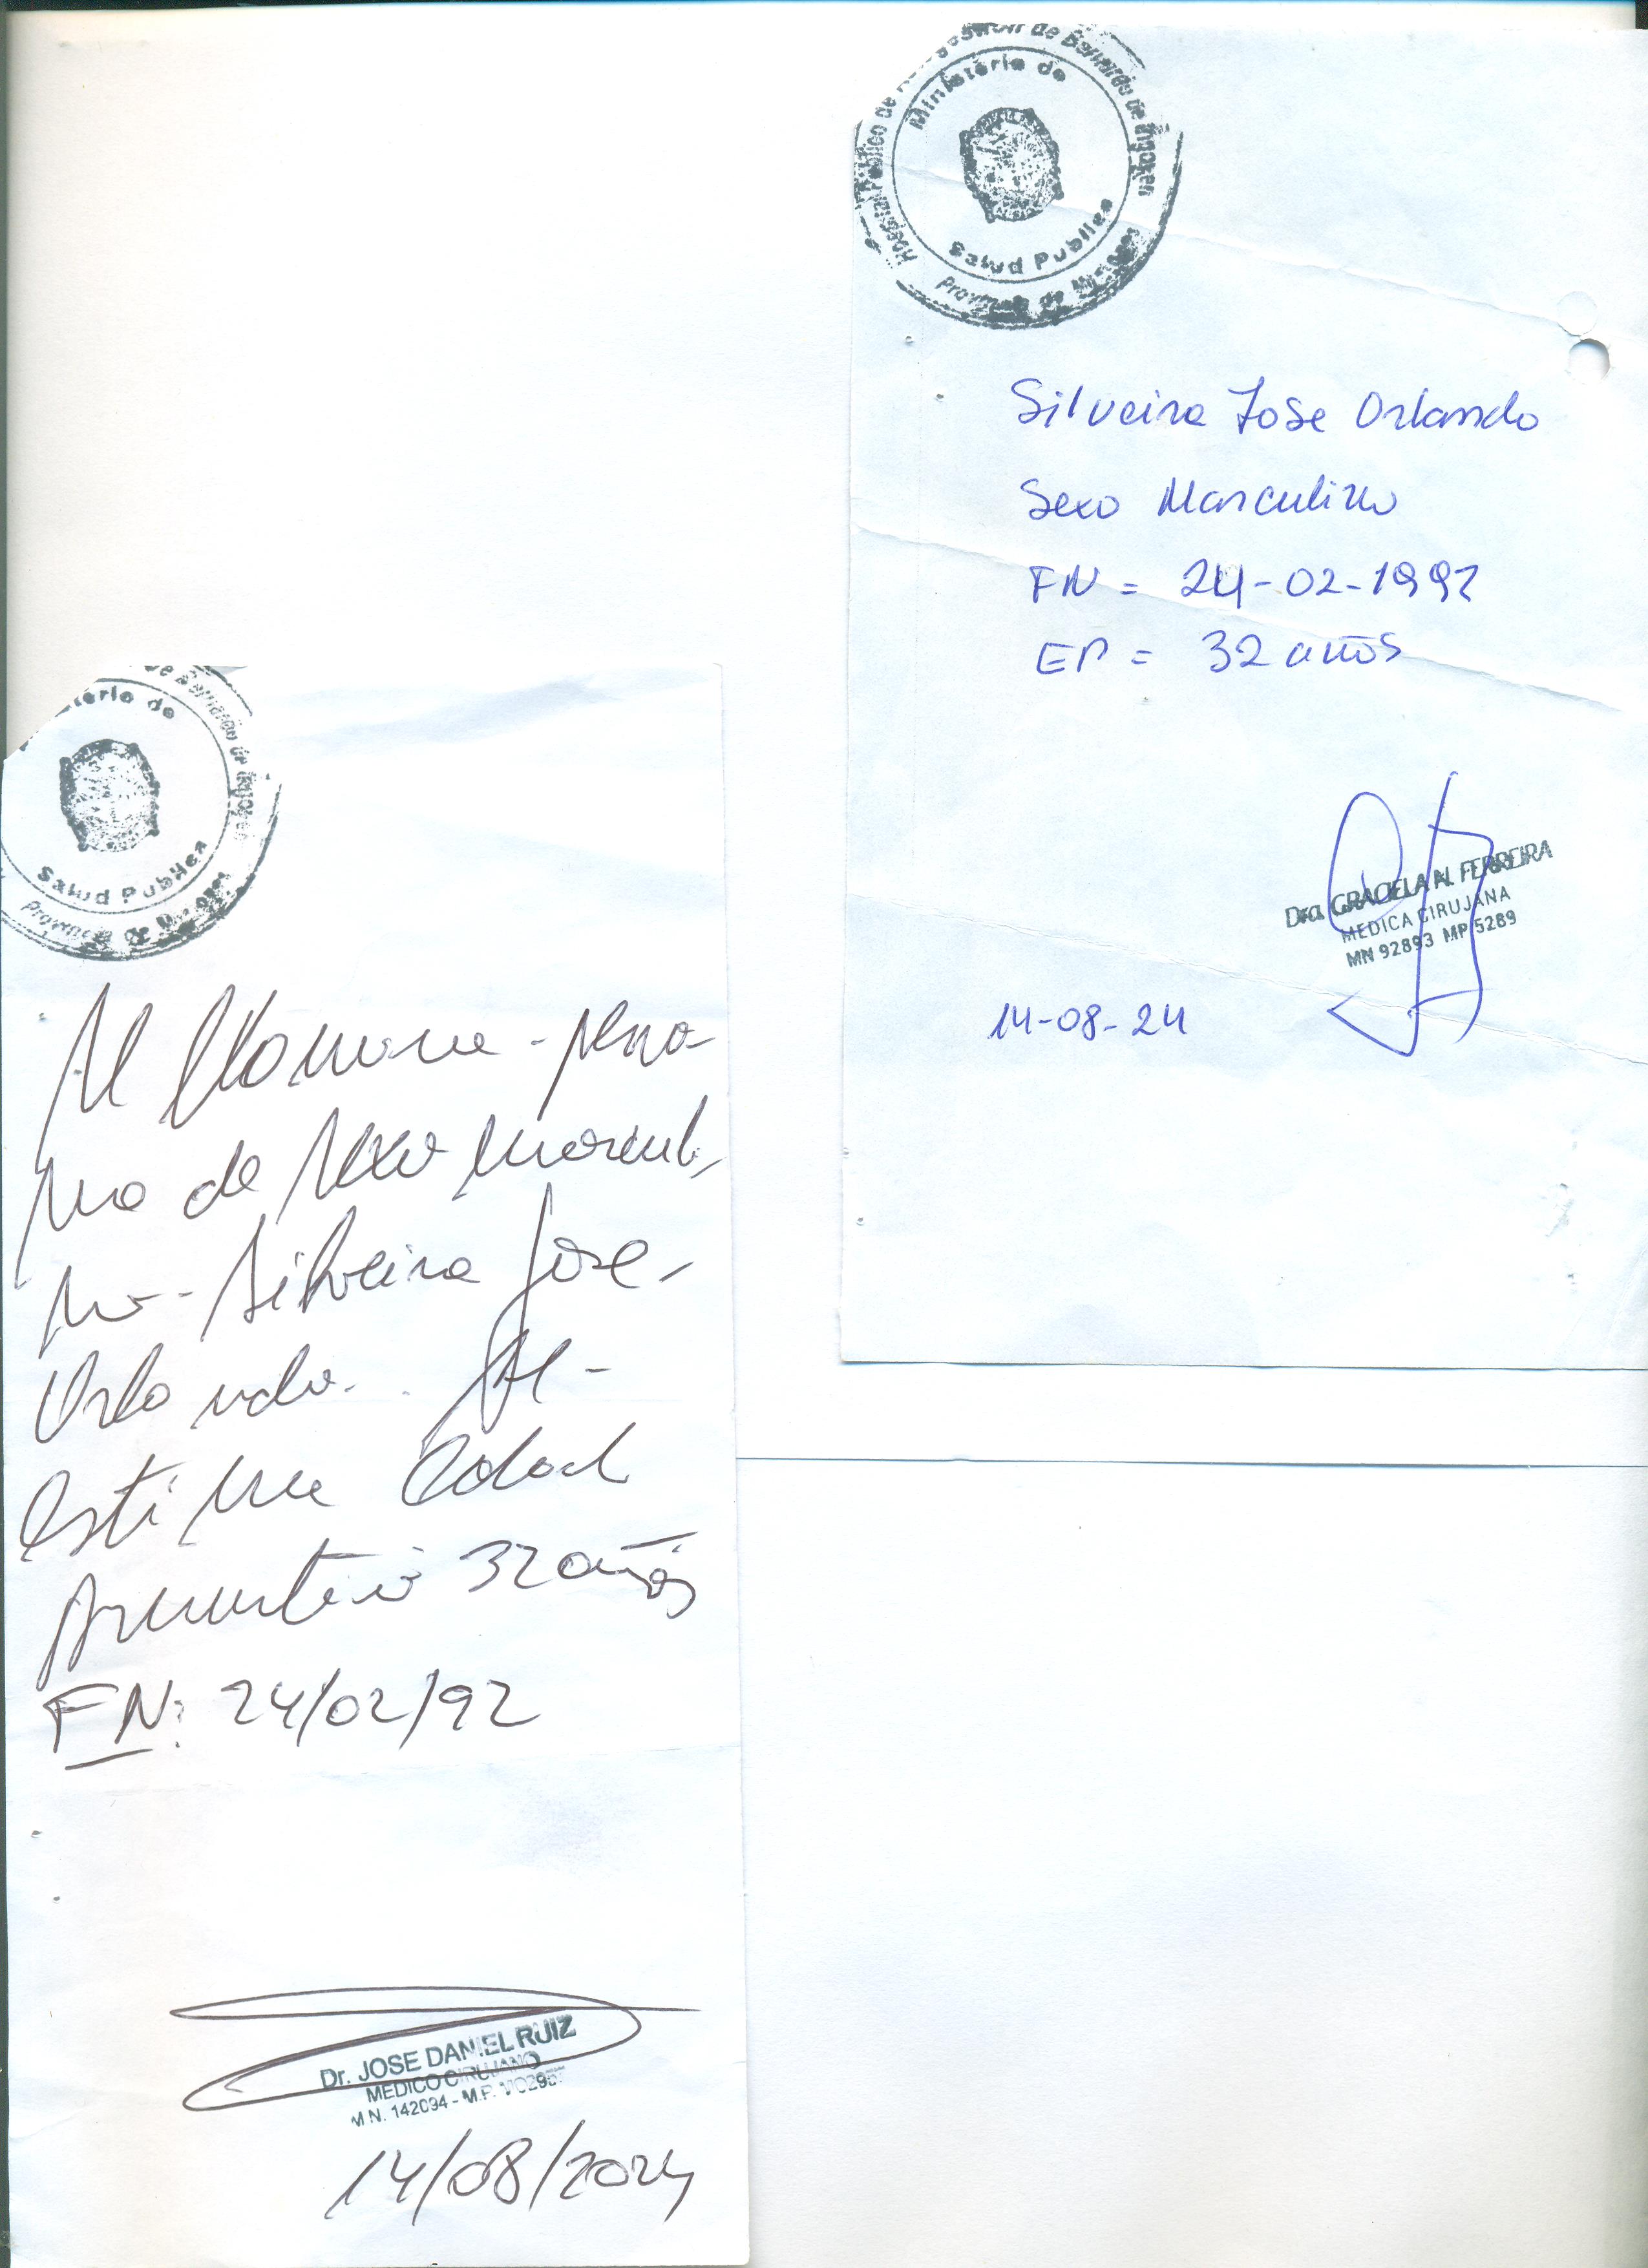 Hospital Público de
de Bernardo de Irigoyen
Ministerio de
Salud Publica
Provincia de Misiones
Silveira Jose Orlando
Sexo Masculino
FN = 24-02-1992
EP = 32 años
Dra. GRACIELA N. FERREIRA
MEDICA CIRUJANA
MN 92893 MP 5289
14-08-24
terio de
Salud Publica
Provincia de Misiones
Al Examen - perso
na de sexo masculi
no - Silveira Jose
Orlando. Se
estima Edad
32 años
FN: 24/02/92
Dr. JOSE DANIEL RUIZ
MEDICO CIRUJANO
M.N. 142094 - M.P.
14/08/2024